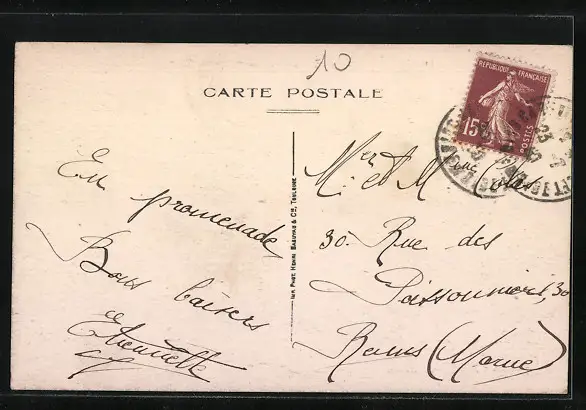 10
CARTE POSTALE
REPUBLIQUE FRANÇAISE
15c
POSTES
En promenade
Bons baisers
Etiennette
IMP. PHOT. HENRI BASUYAU & Cie, TOULOUSE
Mr et Mme Colas
30 Rue des
Poissonniers, 30
Reims (Marne)